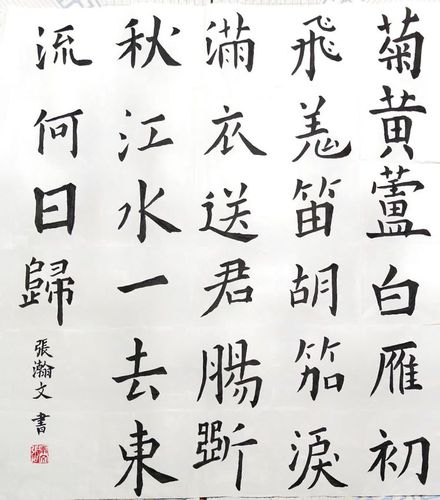 菊黃蘆白雁初
飛羗笛胡笳淚
滿衣送君腸斷
秋江水一去東
流何日歸
張瀚文書